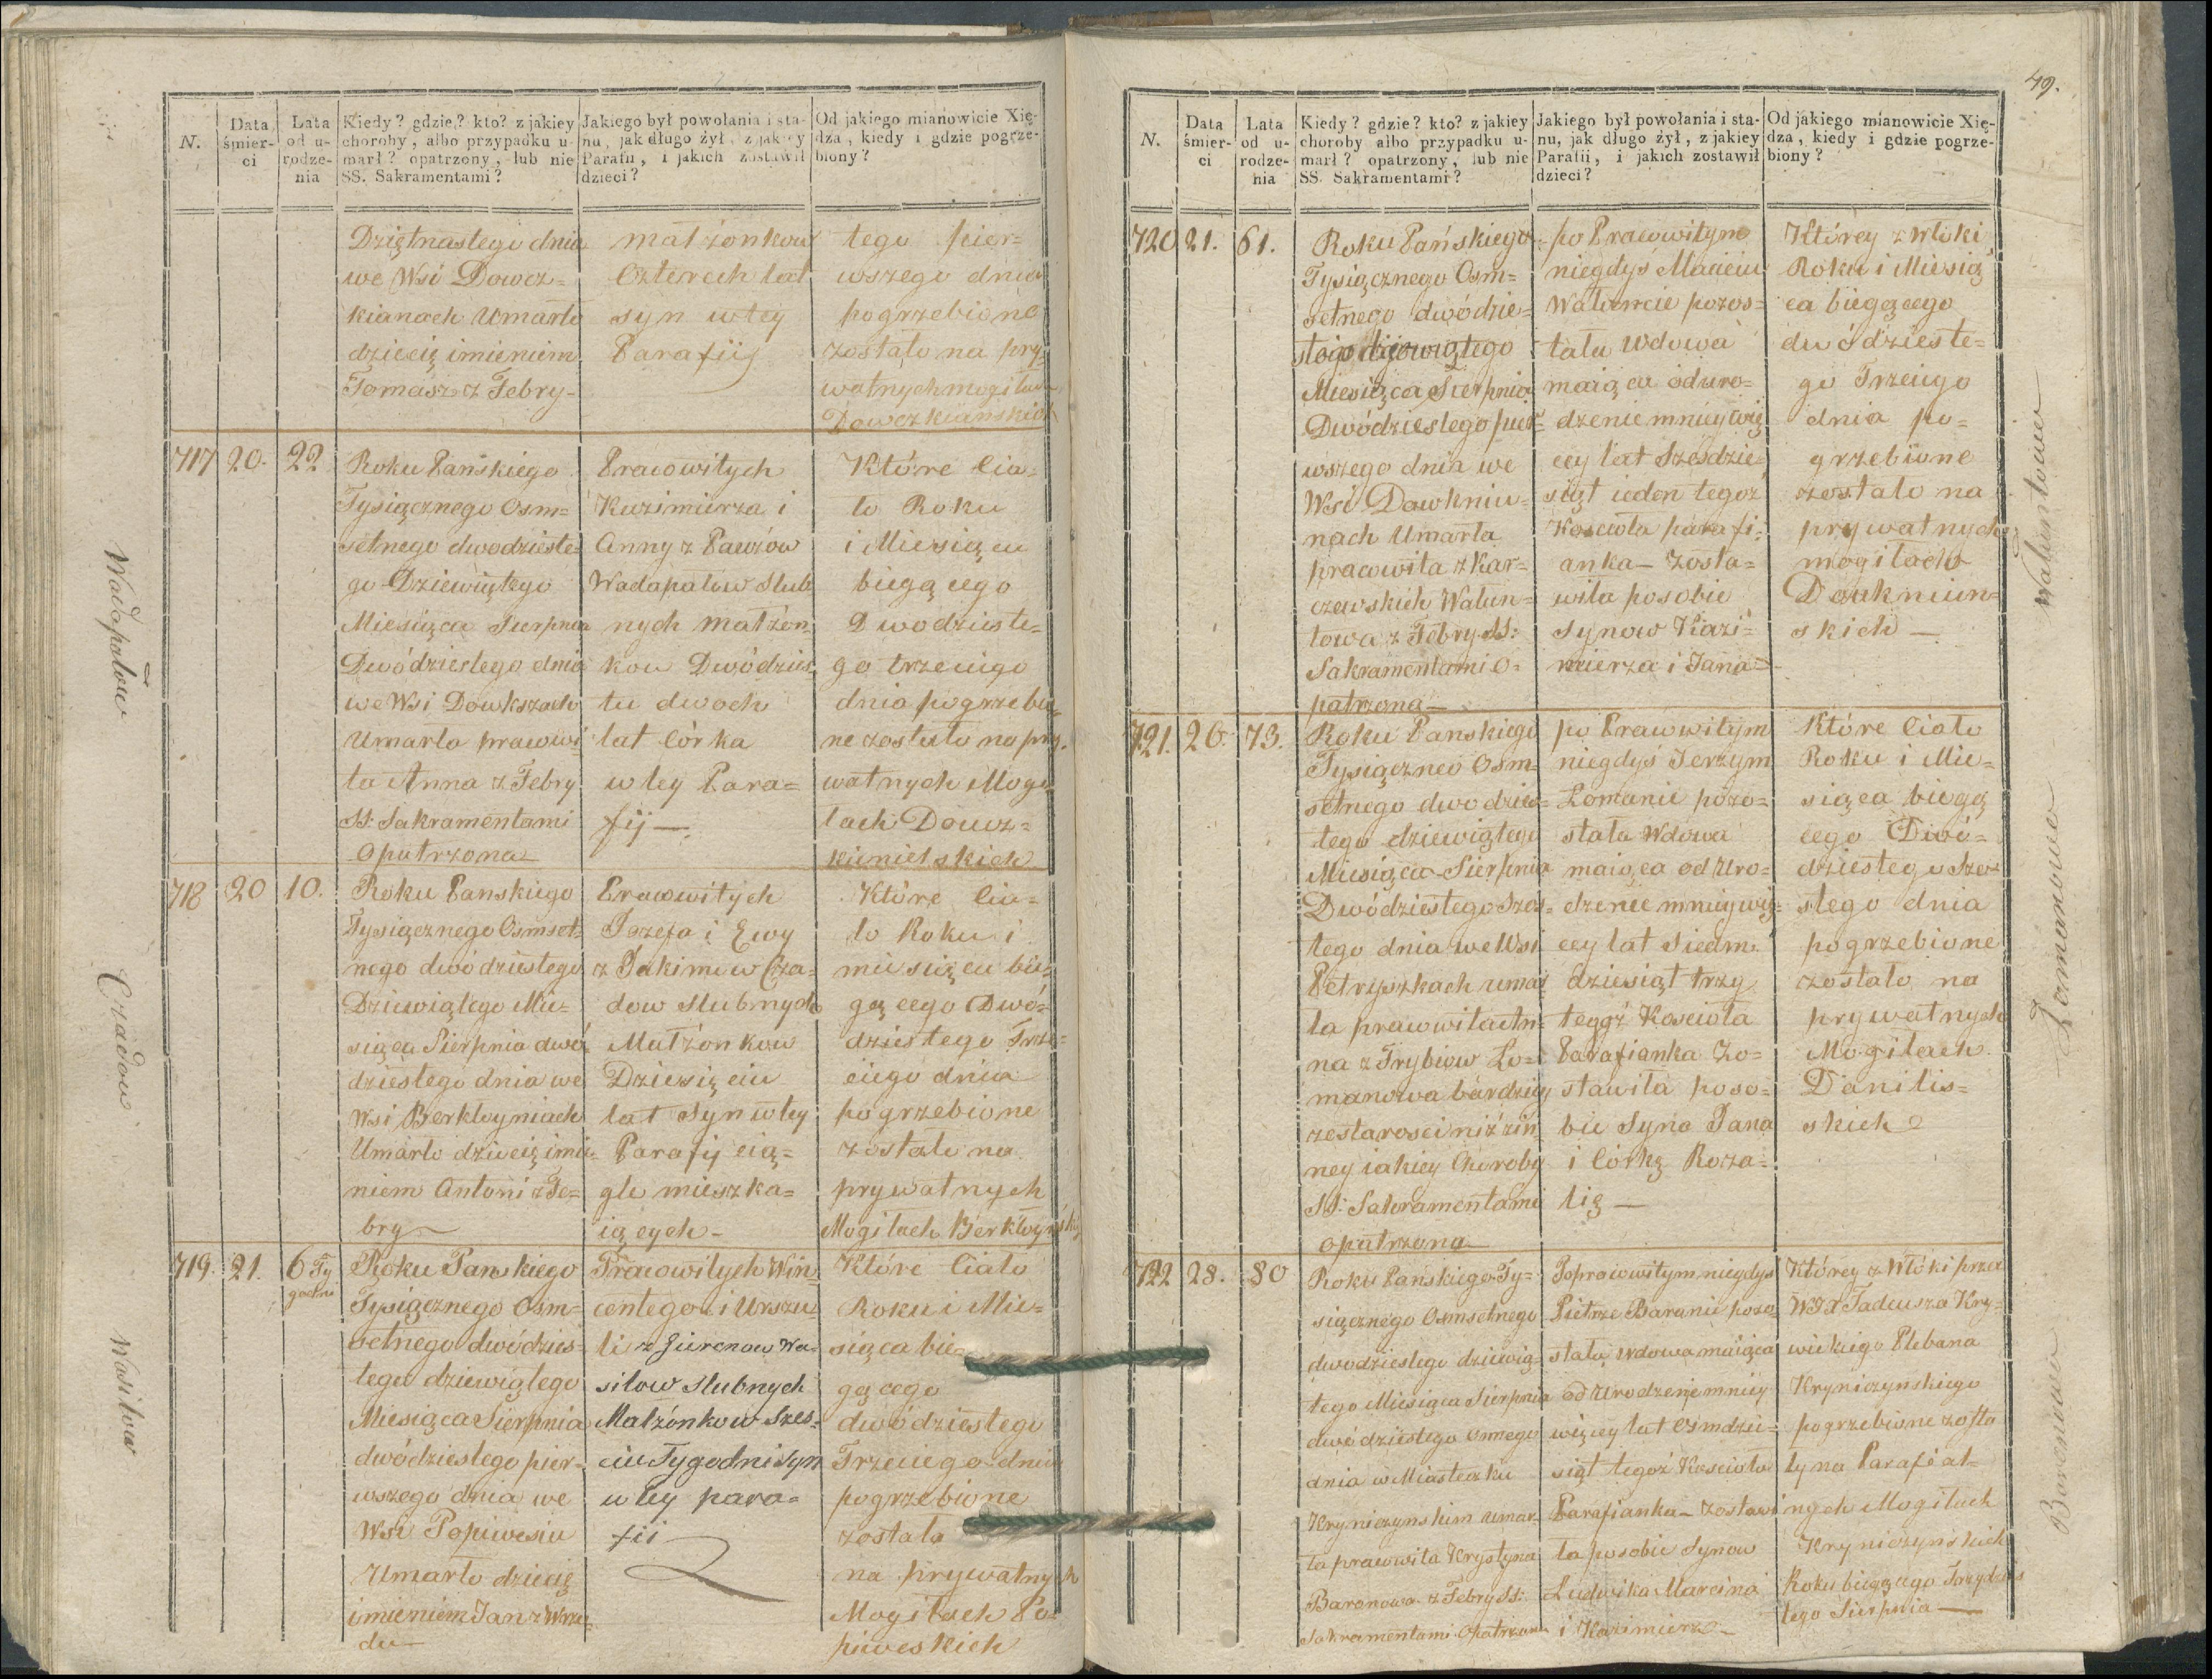 N.
Data śmier-ci
Lata od u-rodze-nia
Kiedy? gdzie? kto? z jakiey
choroby, albo przypadku u-
marł? opatrzony, lub nie
SS. Sakramentami?
Jakiego był powołania i sta-
nu, jak długo żył, z jakiey
Parafii, i jakich zostawił
dzieci?
Od jakiego mianowicie Xię-
dza, kiedy i gdzie pogrze-
biony?
Dziętnastego dnia
we Wsi Dowcz=
kianach Umarło
dziecię imieniem
Tomasz z Febry-
małżonkow
Czterech lat
syn wtey
Parafiij
tego pier=
wszego dnia
pogrzebione
zostało na pry=
watnych mogiłach
Dowczkianskich
717
20.
22
Roku Pańskiego
Tysiącznego Osm=
setnego dwodzieste=
go Dziewiątego
Miesiąca Sierpnia
Dwódziestego dnia
we Wsi Dowkszach
Umarła pracowi
ta Anna z Febry
SS: Sakramentami
Opatrzona
Pracowitych
Kazimierza i
Anny z Pawżów
Wadapałow Slub
nych małżon=
kow Dwódzies
tu dwoch
lat Córka
w tey Para=
fij
Które Cia=
ło Roku
i Miesiąca
biegącego
Dwodzieste=
go trzeciego
dnia pogrzebio=
ne zostało na pry=
watnych Mogi
łach Dowcz=
kianielskich
Wadapałow
718
20
10.
Roku Panskiego
Tysiącznego Osmset=
nego dwódziestego
Dziewiątego Mie=
siąca Sierpnia dwó
dziestego dnia we
Wsi Berklwyniach
Umarło dziecię imie=
niem Antoni z Fe=
bry
Pracowitych
Jozefa i Ewy
z Jakimow Cza=
dow Slubnych
Małżonkow
Dziesięciu
lat Syn wtey
Parafij cią=
gle mieszka=
iących-
Które Cia=
ło Roku i
miesiąca bie=
gącego Dwó=
dziestego Trze=
ciego dnia
pogrzebione
zostało na
prywatnych
Mogiłach Berklwynskich
Czadow
719.
21.
6 Ty
godni
Roku Panskiego
Tysiącznego Osm=
setnego dwódzies=
tego dziewiątego
Miesiąca Sierpnia
dwódziestego pier=
wszego dnia we
Wsi Popiwesiu
Umarło dziecię
imieniem Jan z Wrzo
du
Pracowitych Win=
centego i Urszu
li z Jurenow Wa=
siłow Slubnych
Małżonkow Szes=
ciu Tygodni Syn
wtey para=
fii
Które Ciało
Roku i Mie=
siąca bie
gącego
dwódziestego
Trzeciego dnia
pogrzebione
zostało
na prywatnych
Mogiłach Po=
piweskich
Wasiłow
49.
N.
Data śmier-ci
Lata od u-rodze-nia
Kiedy? gdzie? kto? z jakiey
choroby albo przypadku u-
marł? opatrzony, lub nie
SS. Sakramentami?
Jakiego był powołania i sta-
nu, jak długo żył, z jakiey
Parafii, i jakich zostawił
dzieci?
Od jakiego mianowicie Xię-
dza, kiedy i gdzie pogrze-
biony?
720
21.
61.
Roku Pańskiego
Tysiącznego Osm=
setnego dwódzie=
stego dziewiątego
Miesiąca Sierpnia
Dwódziestego pier=
wszego dnia we
Wsi Dawkniu=
nach Umarła
pracowita z Kar=
czewskich Walun=
towa z Febry SS:
Sakramentami o=
patrzona
po Pracowitym
niegdyś Macieiu
Waluncie pozos=
tała Wdowa
maiąca od uro=
dzenie mniey wię
cey lat Szesdzie=
siąt ieden tegoż
Koscioła parafi=
anka - Zosta=
wiła po sobie
Synow Kazi=
mierza i Jana
Którey zwłoki
Roku i Miesią
ca biegącego
dwódzieste=
go Trzeciego
dnia po=
grzebione
zostało na
prywatnych
mogiłach
Daukniun=
skich
Waluntowa
721.
26.
73.
Roku Panskiego
Tysiączneo Osm=
setnego dwodzies=
tego dziewiątego
Miesiąca Sierpnia
Dwódziestego Szos=
tego dnia we Wsi
Petryszkach umar
ła pracowita An=
na z Trybiow Ło=
manowa bardziey
ze starosci niż z in
ney iakiey Choroby
SS: Sakramentami
opatrzona
po Pracowitym
niegdyś Jerzym
Łomanie pozo=
stała Wdowa
maiąca od Uro=
dzenie mniey wię=
cey lat Siedm
dziesiąt trzy
tegoż Kosciota
Parafianka Zo=
stawiła po so=
bie Syna Jana
i Córkę Roza=
lię
Które Ciało
Roku i Mie=
siąca biegą
cego Dwó=
dziestego Szo=
stego dnia
pogrzebione
zostało na
prywatnych
Mogiłach
Danilis=
skich
Łomanowa
722
28.
80
Roku Pańskiego Ty=
siącznego Osmsetnego
dwodziestego dziewią=
tego Miesiąca Sierpnia
dwódziestego osmego
dnia w Miasteczku
Kryniczynskim umar=
ła pracowita Krystyna
Baranowa z Febry SS:
Sakramentami Opatrzona
Po pracowitym niegdyś
Pietrze Baranie pozo
stała Wdowa maiąca
od Urodzenie mniey
więcey lat Osmdzie=
siąt tegoż Kosciota
Parafianka - Zostawi
ła po sobie Synow
Ludwika Marcina
i Kazimierza
Którey z Włoki przez
WJX Tadeusza Kry=
wickiego Plebana
Kryniczynskiego
pogrzebione zosta
ły na Parafial=
nych Mogiłach
Kryniczynskich
Roku biegącego Trzydzies
tego Sierpnia
Baranowa